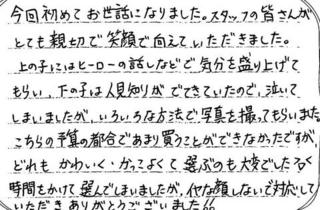 今回初めてお世話になりました。スタッフの皆さんが
とても親切で笑顔で向えていただきました。
上の子にはヒーローの話しなどで気分を盛り上げて
もらい、下の子は人見知りがでてきていたので、泣いて
しまいましたが、いろいろな方法で写真を撮ってもらいまた
こちらの予算の都合であまり買うことができなかったですが、
どれも かわいく・かってよくて 選ぶのも大変でした
時間をかけて 選んでしまいましたが、イヤな顔しないで対応して
いただき ありがとうございました